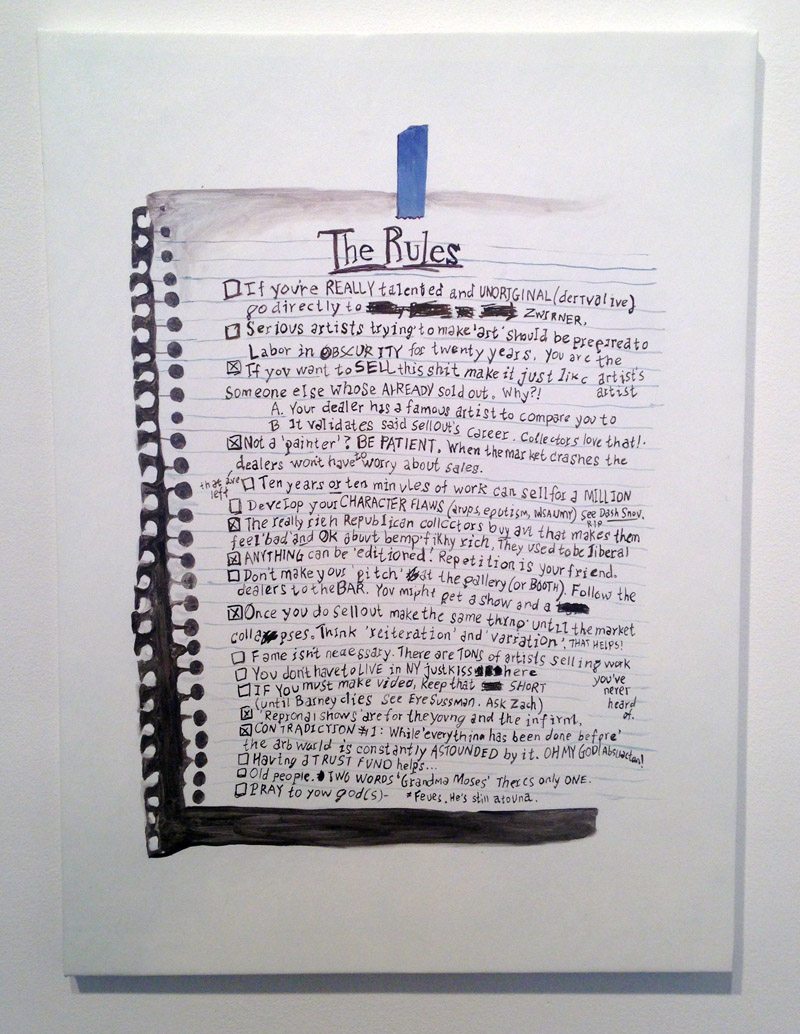 The Rules
If you're REALLY talented and UNORIGINAL (derivative)
go directly to ZWIRNER,
Serious artists trying to make 'art' should be prepared to
Labor in OBSCURITY for twenty years. You are the
artist's
artist
If you want to SELL this shit make it just like
someone else whose ALREADY sold out. Why?!
A. Your dealer has a famous artist to compare you to
B It validates said sellout's career. Collectors love that!
Not a 'painter'? BE PATIENT. When the market crashes the
dealers won't have to worry about sales.
that are
left
Ten years or ten minutes of work can sell for a MILLION
Develop your CHARACTER FLAWS (drugs, egotism, INSANITY) See Dash Snow.
RIP
The really rich Republican collectors buy art that makes them
feel 'bad' and OK about being filthy rich. They used to be liberal
ANYTHING can be 'editioned'! Repetition is your friend.
Don't make your 'pitch' at the gallery (or BOOTH). Follow the
dealers to the BAR. You might get a show and a
Once you do sell out make the same thing until the market
collapses. Think 'reiteration' and 'variation'. THAT HELPS!
Fame isn't necessary. There are TONS of artists selling work
you've
never
heard
of.
You don't have to LIVE in NY just kiss here
IF YOU must make video, keep that SHORT
(until Barney dies See Eve Sussman. ASK Zach)
'Regional shows' are for the young and the infirm,
CONTRADICTION #1: While 'everything has been done before'
the art world is constantly ASTOUNDED by it. OH MY GOD! Abstraction!
Having a TRUST FUND helps...
Old people. TWO WORDS 'Grandma Moses' Theres only ONE.
PRAY to your god(s)- He's still around.